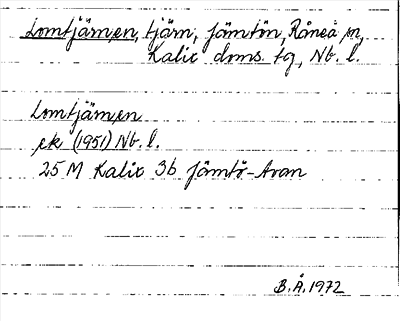 Lomtjärn,en, tjärn, Jämtön, Råneå sn,
Kalix doms. tg, Nb. l.
Lomtjärn,en
ek (1951) Nb. l.
25 M Kalix 3b Jämtö-Avan
B.Å. 1972